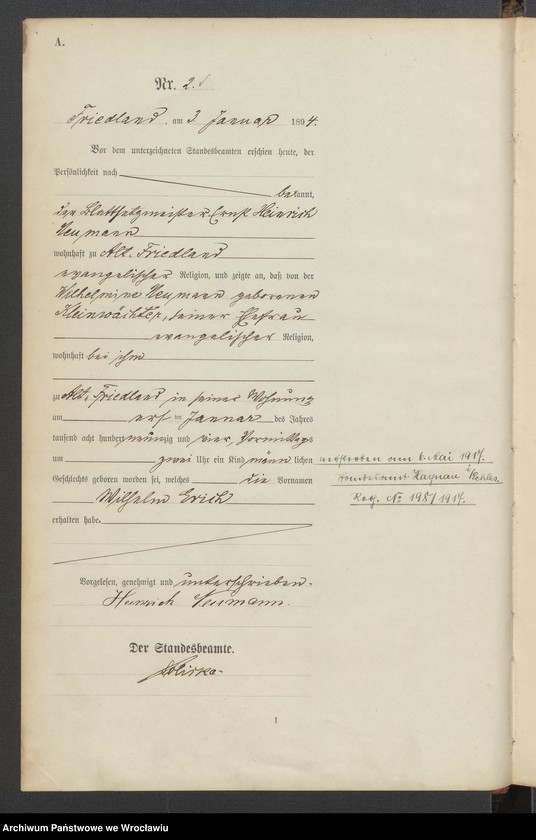 A.
Nr. 2.
Friedland, am 3. Januar 1894.
Vor dem unterzeichneten Standesbeamten erschien heute, der
Persönlichkeit nach
bekannt,
der Blattsetzmeister Ernst Heinrich
Neumann
wohnhaft zu Alt-Friedland
evangelischer Religion, und zeigte an, daß von der
Wilhelmine Neumann geborenen
Kleinwächter, seiner Ehefrau
evangelischer Religion,
wohnhaft bei ihm
zu Alt-Friedland in seiner Wohnung
am ersten Januar des Jahres
tausend acht hundert neunzig und vier, Vormittags
um zwei Uhr ein Kind männlichen
Geschlechts geboren worden sei, welches die Vornamen
Wilhelm Erich
erhalten habe.
Vorgelesen, genehmigt und unterschrieben.
Heinrich Neumann.
Der Standesbeamte.
verstorben am 6. Mai 1917.
Standesamt Haynau i/Schles.
Reg. No 198/1917.
1
Archiwum Państwowe we Wrocławiu